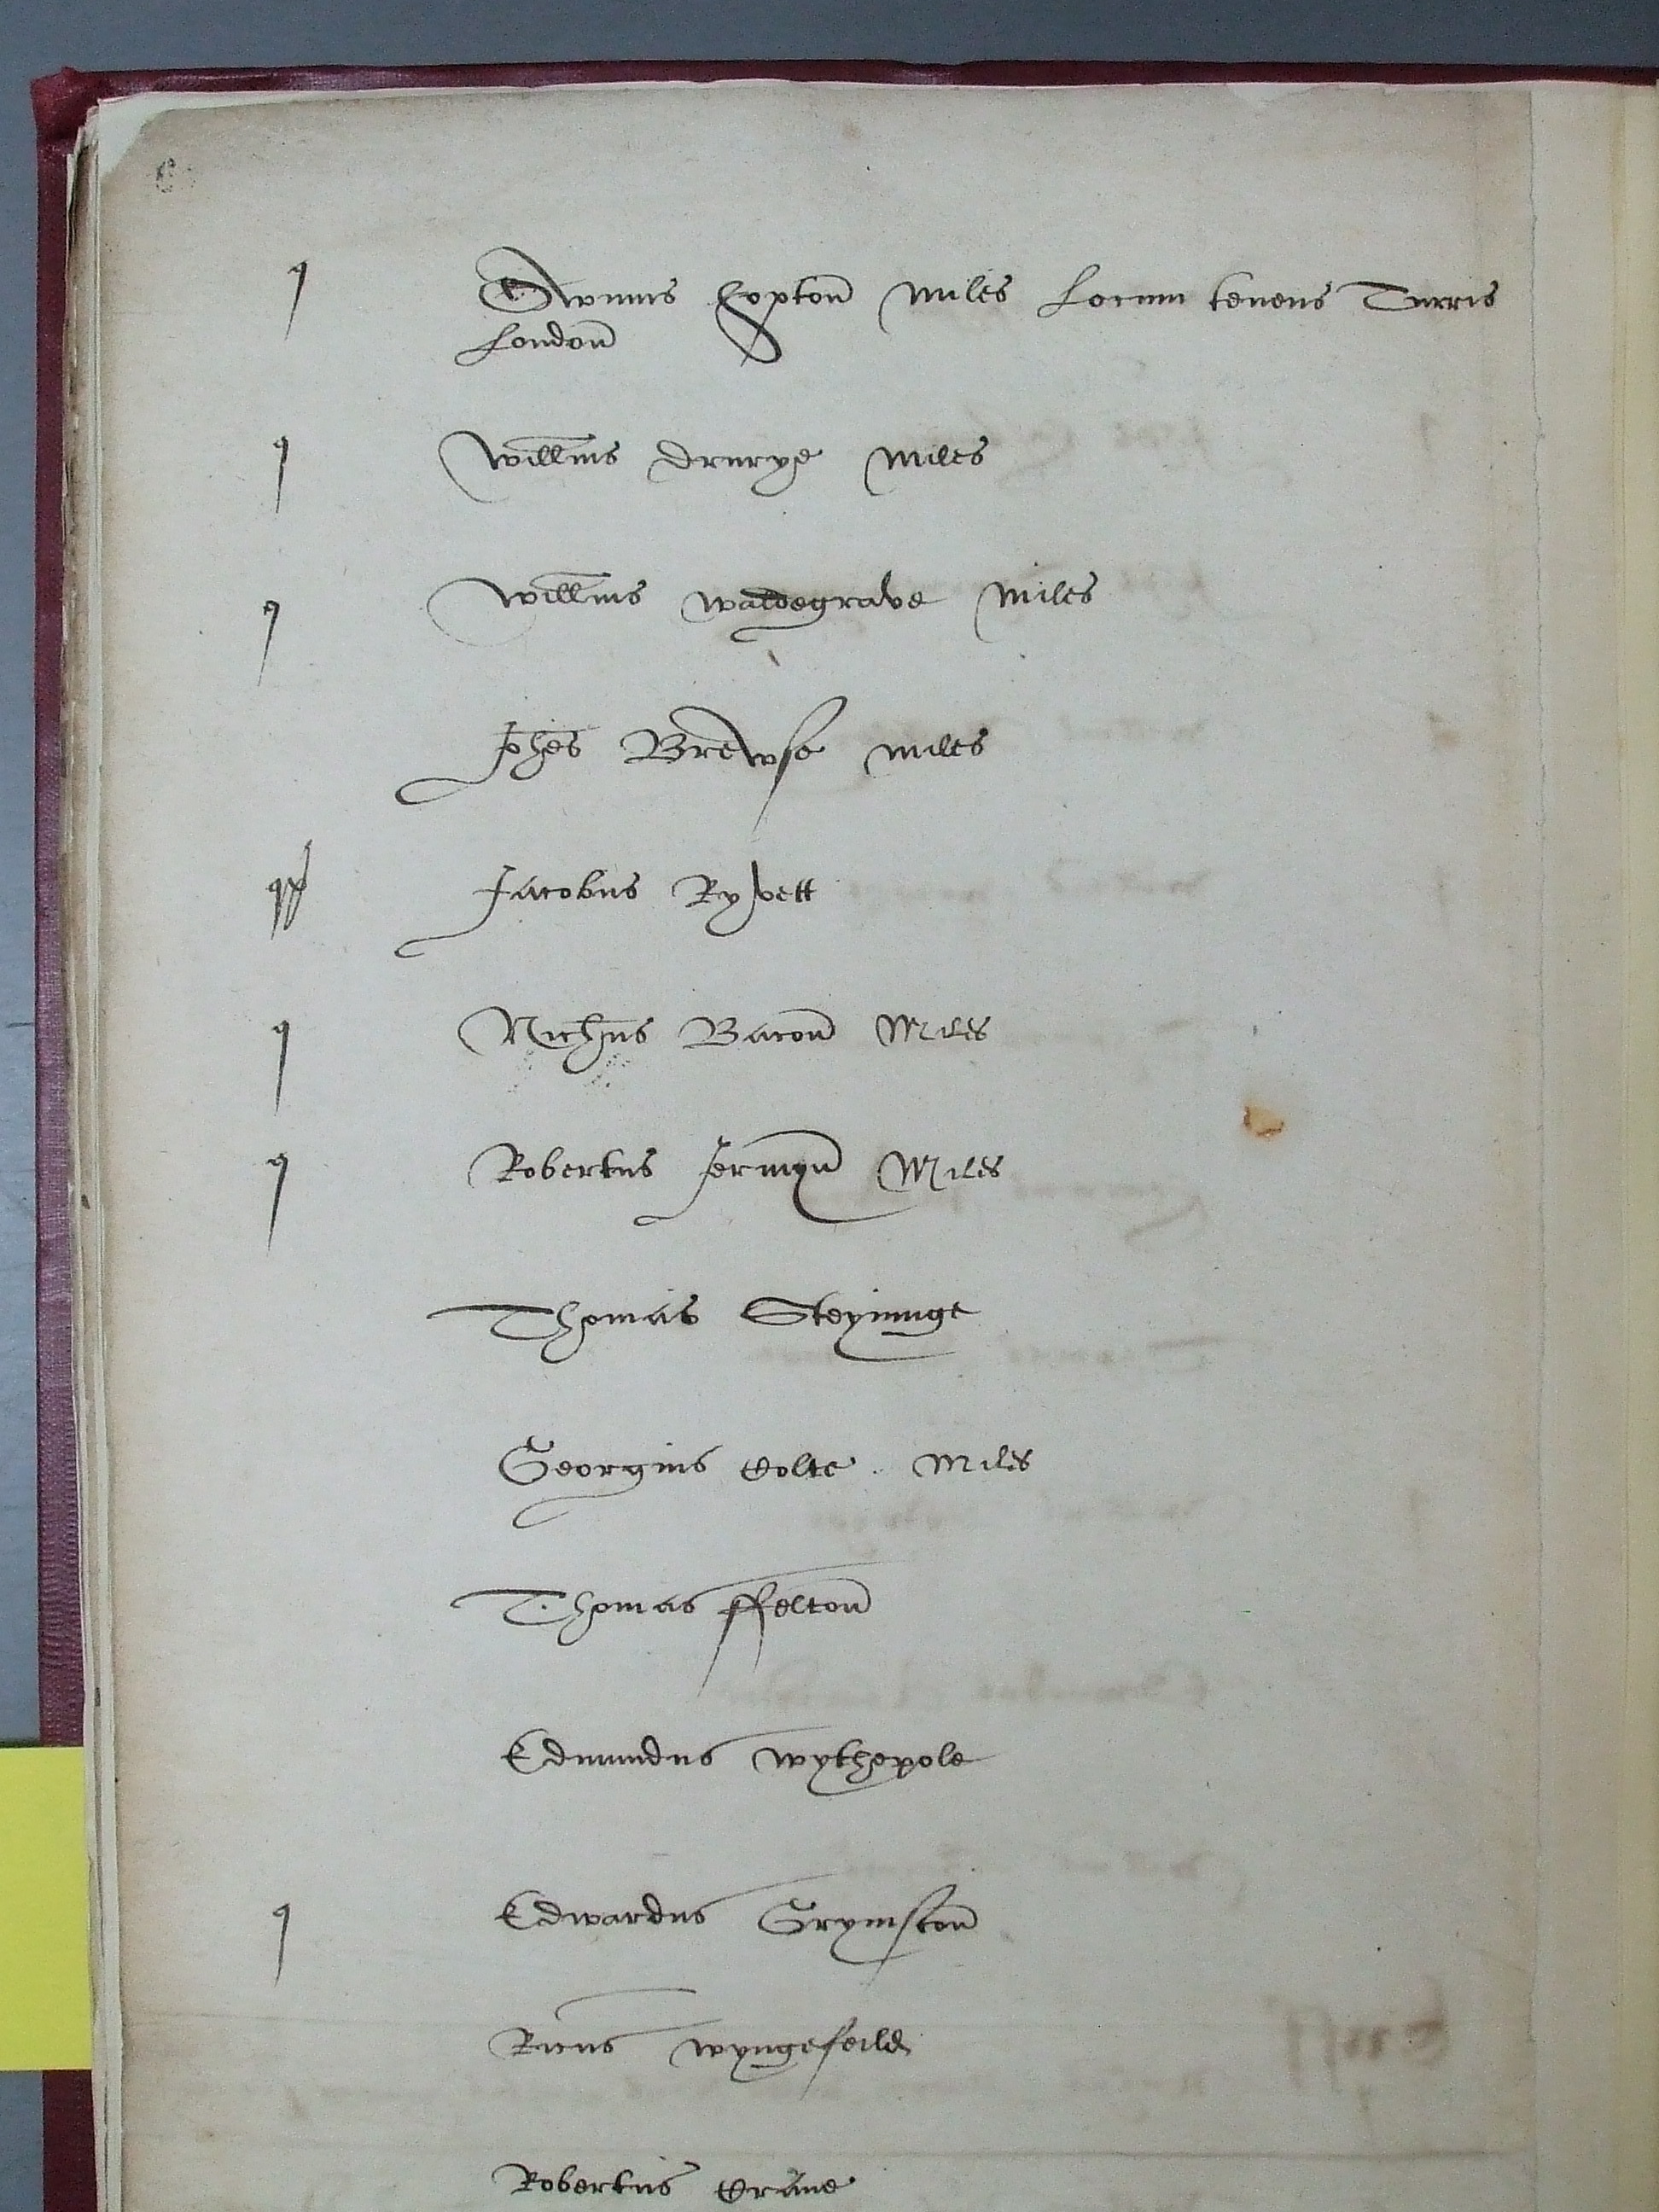 q Owinus Hopton Miles Locum tenens Turris
London
q Willms Drurye Miles
q Willms Waldegrave Miles
Johes Brewse miles
Jacobus Ryvett
q Nichus Bacon Miles
q Robertus Jermyn Miles
Thomas Steyninge
Georgius Colte. Miles
Thomas ffelton
Edmundus Wythepole
q Edwardus Grymston
Ricus Wyngefeild
Robertus Crane